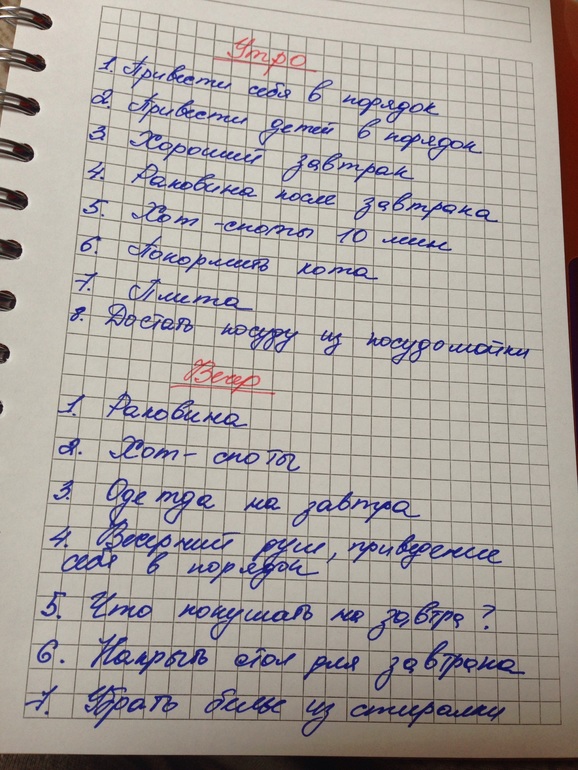 Утро
1. Привести себя в порядок
2. Привести детей в порядок
3. Хороший завтрак
4. Раковина после завтрака
5. Хот-споты 10 мин
6. Покормить кота
7. Плита
8. Достать посуду из посудомойки
Вечер
1. Раковина
2. Хот-споты
3. Одежда на завтра
4. Вечерний душ, приведение
себя в порядок
5. Что покушать на завтра?
6. Накрыть стол для завтрака
7. Убрать белье из стиралки